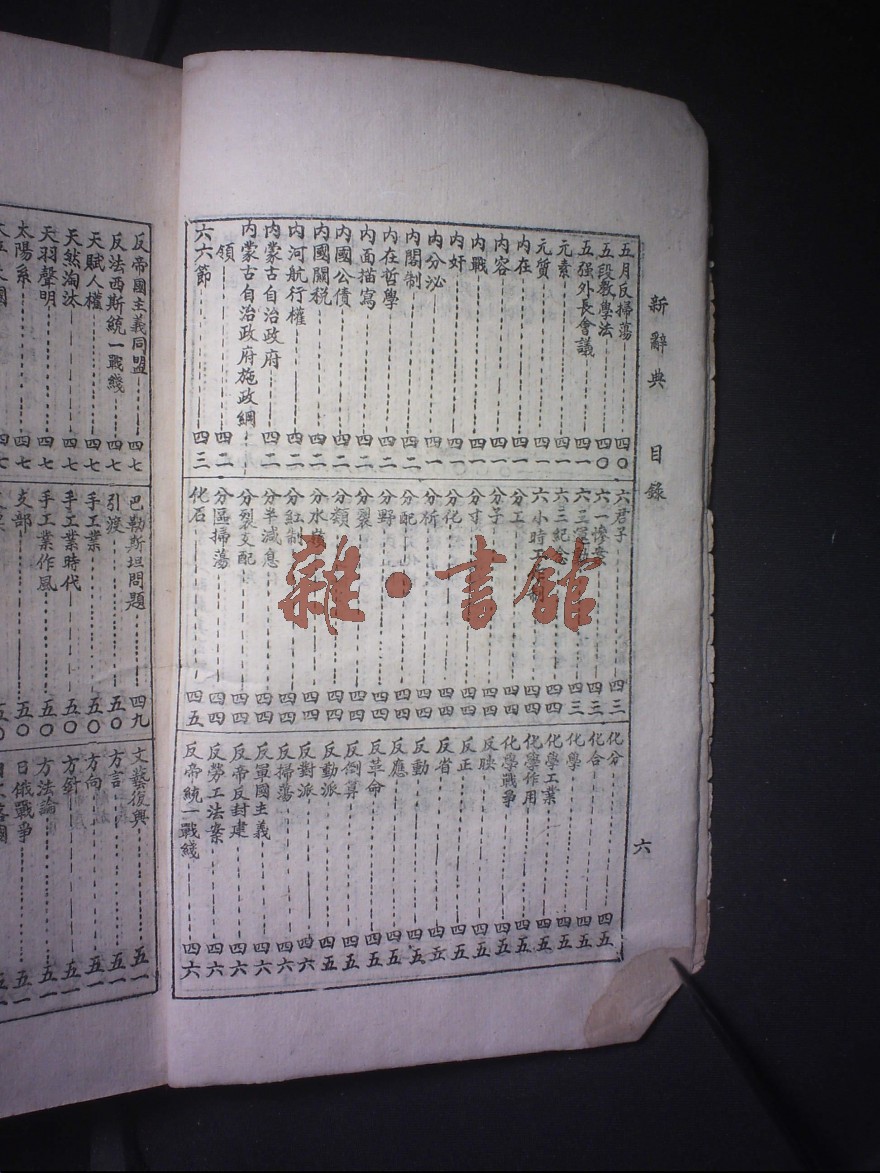 新辭典 目錄
六
五月反掃蕩 四〇
五段教學法 四〇
五强外長會議 四一
元素 四一
元質 四一
內在 四一
內容 四一
內戰 四一
內奸 四一
內分泌 四一
內閣制 四二
內在哲學 四二
內面描寫 四二
內國公債 四二
內國關税 四二
內河航行權 四二
內蒙古自治政府 四二
內蒙古自治政府施政綱
領 四二
六六節 四三
六君子 四三
六一慘案 四三
六三 四三
六三紀念 四四
六小時工 四四
分工 四四
分子 四四
分寸 四四
分化 四四
分析 四四
分配 四四
分野 四四
分裂 四四
分類 四四
分水 四四
分紅制 四四
分半減息 四四
分裂支配 四四
分區掃蕩 四四
化石 四五
化分 四五
化合 四五
化學 四五
化學工業 四五
化學作用 四五
化學戰爭 四五
反映 四五
反正 四五
反省 四五
反動 四五
反應 四五
反革命 四五
反倒算 四五
反動派 四五
反對派 四六
反掃蕩 四六
反軍國主義 四六
反帝反封建 四六
反勞工法案 四六
反帝統一戰綫 四六
反帝國主義同盟 四七
反法西斯統一戰綫 四七
天賦人權 四七
天然淘汰 四七
天羽聲明 四七
太陽系 四七
巴勒斯坦問題 四九
引渡 五〇
手工業 五〇
手工業時代 五〇
手工業作風 五〇
支部 五〇
文藝復興 五一
方言 五一
方向 五一
方針 五一
方法論 五一
日俄戰爭 五一
雜·書館